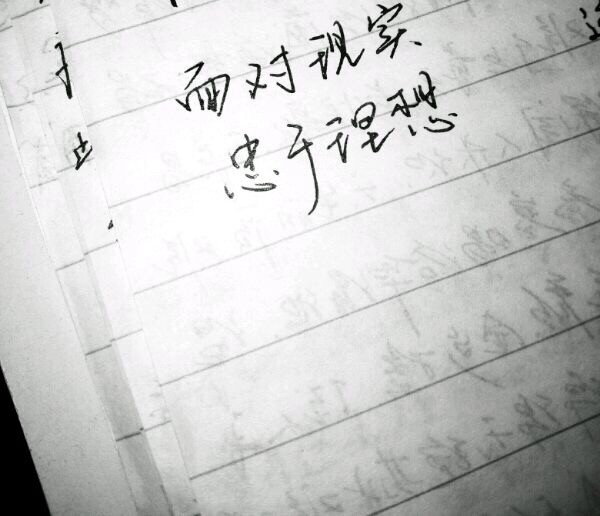 面对现实
忠于理想